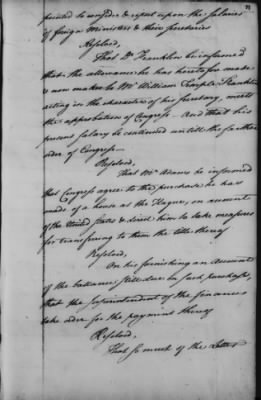 pointed to consider & report upon the Salaries
of foreign Ministers & their Secretaries
Resolved,
That Dr Franklin be informed
that the allowance he has heretofore made
& now makes to Mr William Temple Franklin
acting in the character of his Secretary, meets
the approbation of Congress — And that his
present Salary be continued until the farther
order of Congress —
Resolved,
That Mr Adams be informed
that Congress agree to the purchase he has
made of a house at the Hague, on account
of the United States & direct him to take measures
for transferring to them the title thereof
Resolved,
On his furnishing an Account
of the ballance still due on such purchase,
that the Superintendent of the finances
take order for the payment thereof
Resolved,
That so much of the Letter